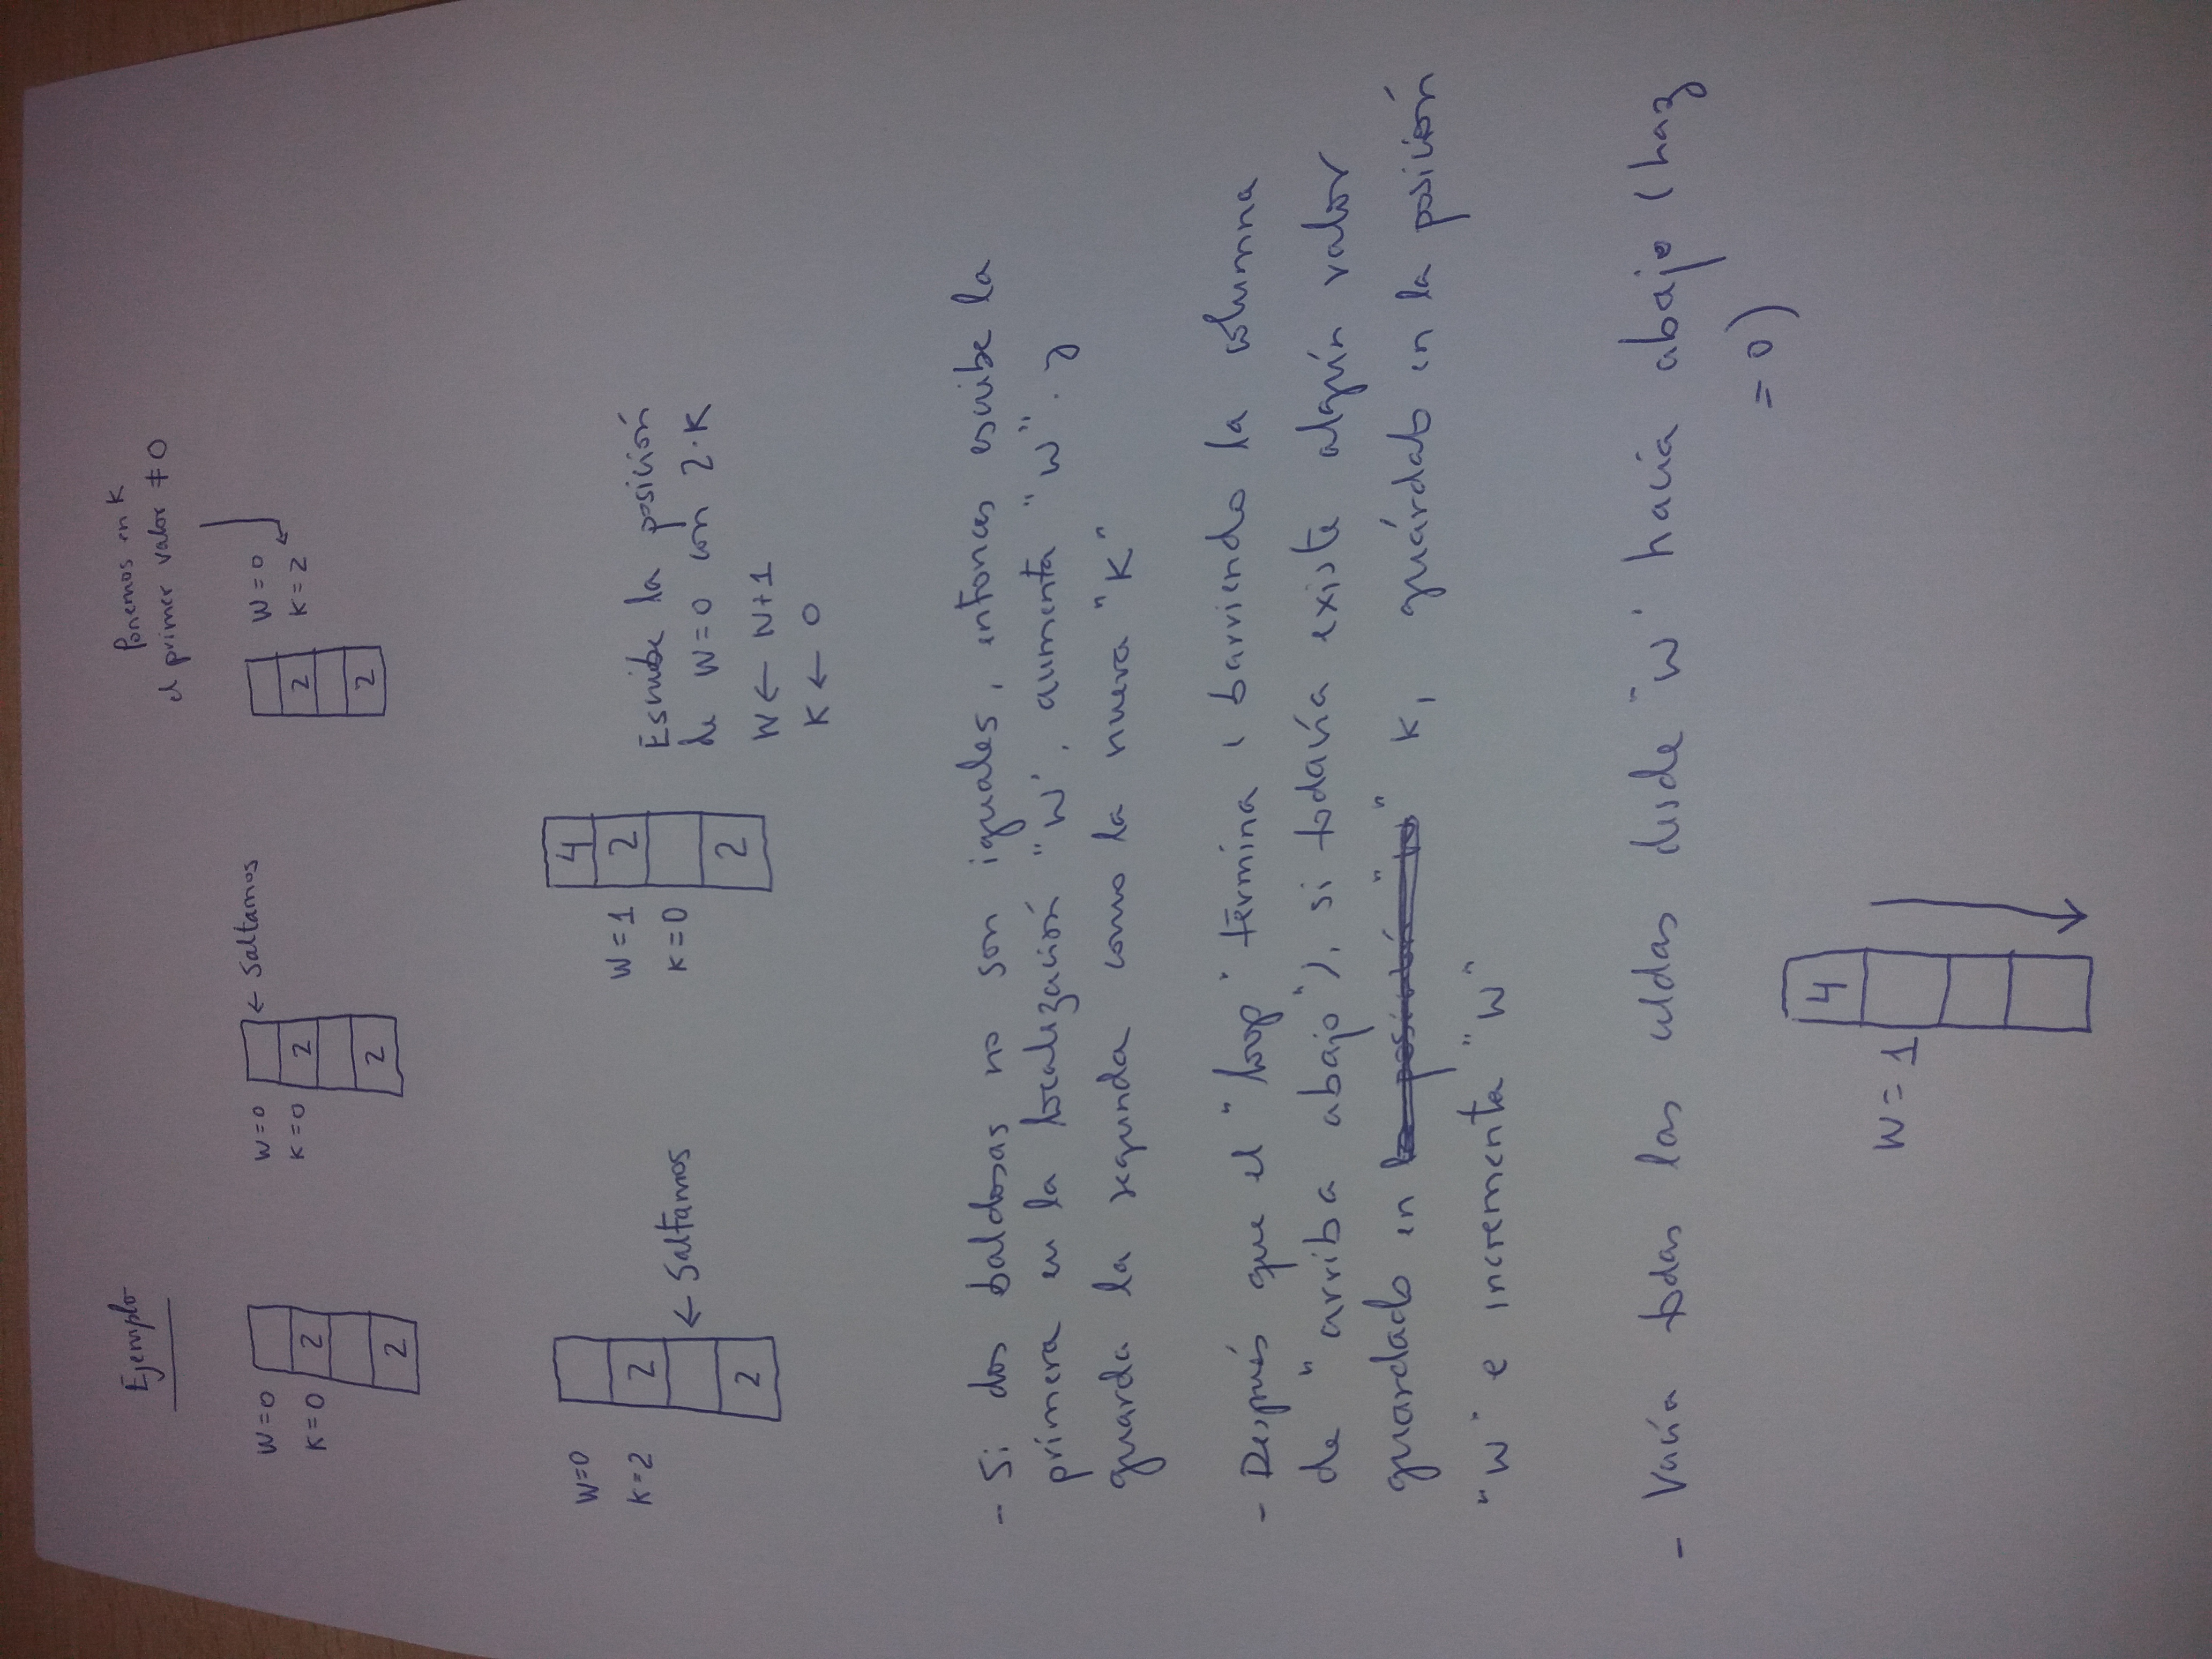 Ejemplo
Ponemos en K
el primer valor ≠ 0
W=0
K=0
2
2
W=0
K=0
2
2
← Saltamos
2
2
W=0
K=2
W=0
K=2
2
2
← Saltamos
W=1
K=0
4
2
2
Escribe la posición
de W=0 con 2·K
W ← W+1
K ← 0
- Si dos baldosas no son iguales, entonces escribe la
primera en la localización "W", aumenta "W". y
guarda la segunda como la nueva "K"
- Después que el "loop" términa (barriendo la columna
de "arriba abajo"), si todavía existe algún valor
guardado en K, guárdalo en la posición
"W" e incrementa "W"
- Vacía todas las celdas desde "W" hacía abajo (haz
= 0)
W = 1
4